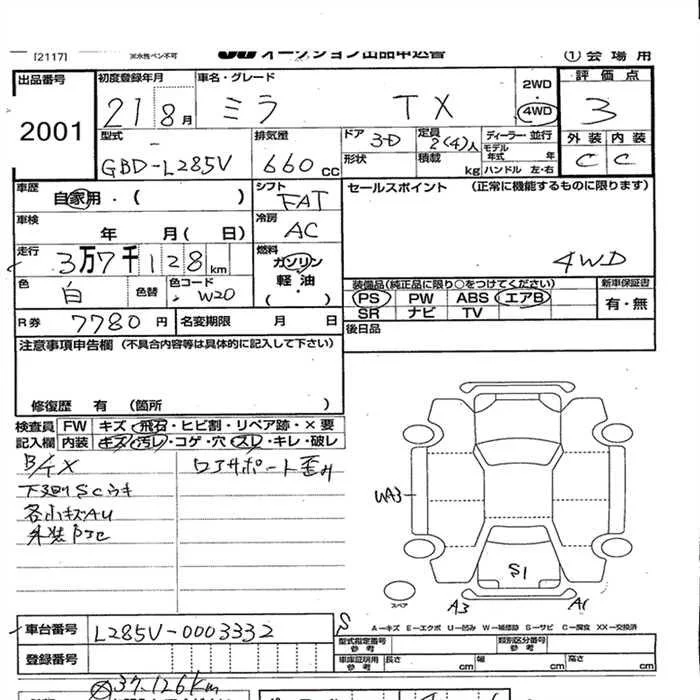 [2117] 油水性ペン不可 オークション出品申込書 ① 会場用
出品番号 初度登録年月 車名・グレード 2WD・4WD 評価点
2001 21 8月 ミラ TX 3
型式 排気量 ドア 3-D 定員 2(4)人 ディーラー・並行 外装 内装
GBD-L285V 660cc 形状 積載 kg モデル年式 年 ハンドル 左・右 C C
車歴 自家用・( ) シフト FAT セールスポイント (正常に機能するものに限ります)
車検 年 月(日) 冷房 AC
走行 3万7千128km 燃料 ガソリン 軽油・( ) 4WD
色 白 色替 色コード W20 装備品(純正品に限り○をつけてください) 新車保証書
PS PW ABS エアB 有・無
SR ナビ TV
R券 7780円 名変期限 月 日 後日品
注意事項申告欄 (不具合内容等は具体的に記入して下さい)
修復歴 有 (箇所 )
検査員 FW キズ・飛石・ヒビ割・リペア跡・×要
記入欄 内装 キズ・汚レ・コゲ・穴・スレ・キレ・破レ
コアサポート歪み
下廻りSCウキ
各小キズAU
WA3
S1
A3 A1
スペア
A-キズ E-エクボ U-凹み W-補修跡 S-サビ C-腐食 XX-交換済
車台番号 L285V-0003332 型式指定番号 参考 類別区分番号 参考
登録番号 車庫証明用 参考 長さ cm 幅 cm 高さ cm
37.126km